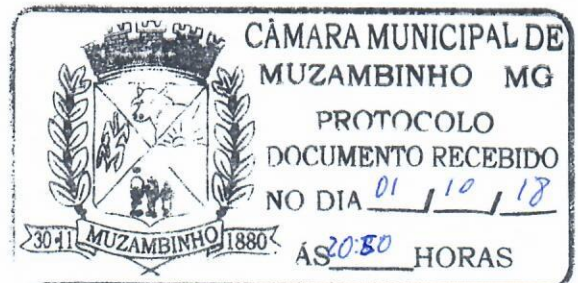 CÂMARA MUNICIPAL DE
MUZAMBINHO MG
PROTOCOLO
DOCUMENTO RECEBIDO
NO DIA 01 / 10 / 18
ÁS HORAS
30-11 MUZAMBINHO 1880